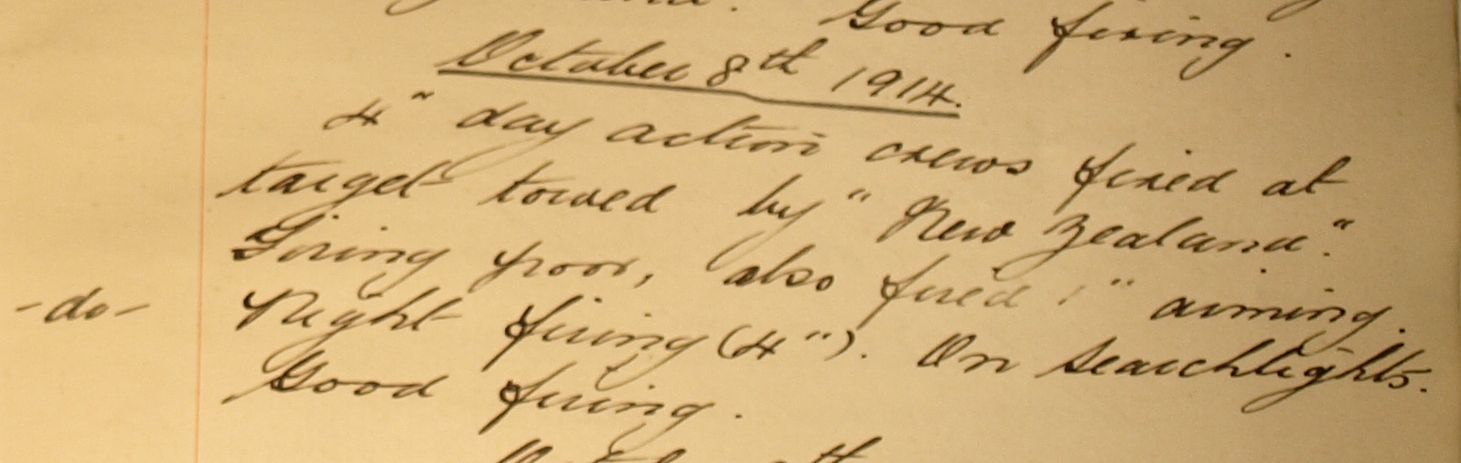 Good firing.
October 8th 1914.
4" day action crews fired at
target towed by "New Zealand."
Firing poor, also fired 1" aiming.
-do- Night firing (4"). On Searchlights.
Good firing.